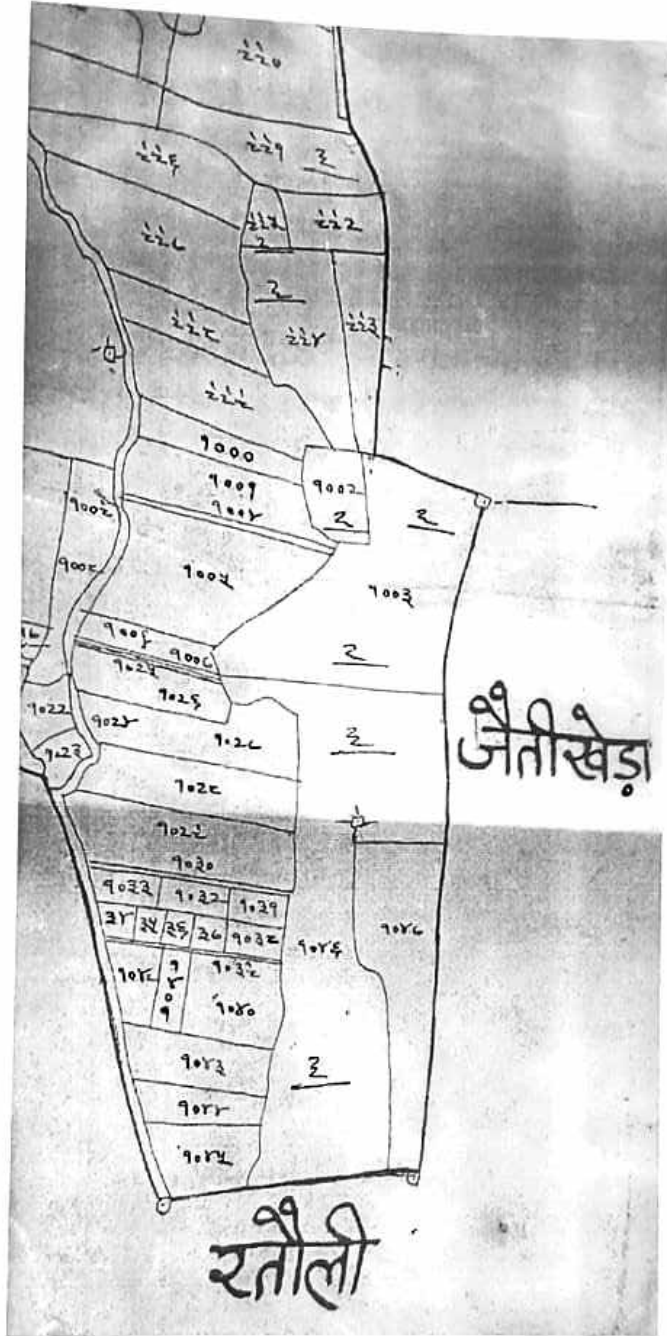 ९९०
९९१
३
९९६
९९५
२
९९२
९९७
२
९९४
९९३
९९८
९९९
१०००
१००१
१००२
२
२
१००४
१००९
१००५
१००८
१००३
१००६
१००७
२
१०२५
१०२६
१०२२
१०२४
१०२७
३
जैतीखेड़ा
१०२३
१०२८
१०२९
१०३०
१०३३
१०३२
१०३१
३४
३५
३६
३७
१०३८
१०४६
१०४७
१
४
०
१
१०३९
१०४०
१०४३
३
१०४४
१०४५
रतौली